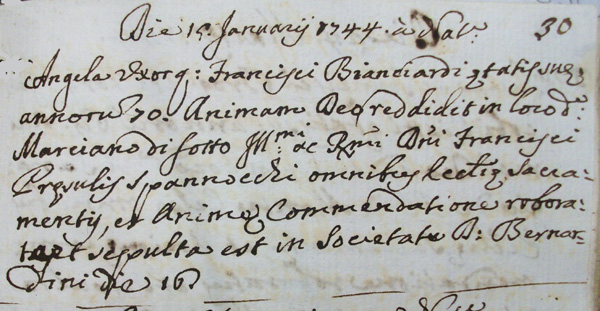 Die 15 Januarij 1744 à Nat.e 30
Angela Uxor q: Francisci Bianciardi ętatis suę
annoru 70. Animam Deo reddidit in loco d:
Marciano di sotto Ill:mi ac Rmi Dni Francisci
Pręsulis Spannocchi omnibus Ecclię Sacra=
mentis, et Animę Commendatione robora=
et sepulta est in Societate S: Bernar=
dini die 16